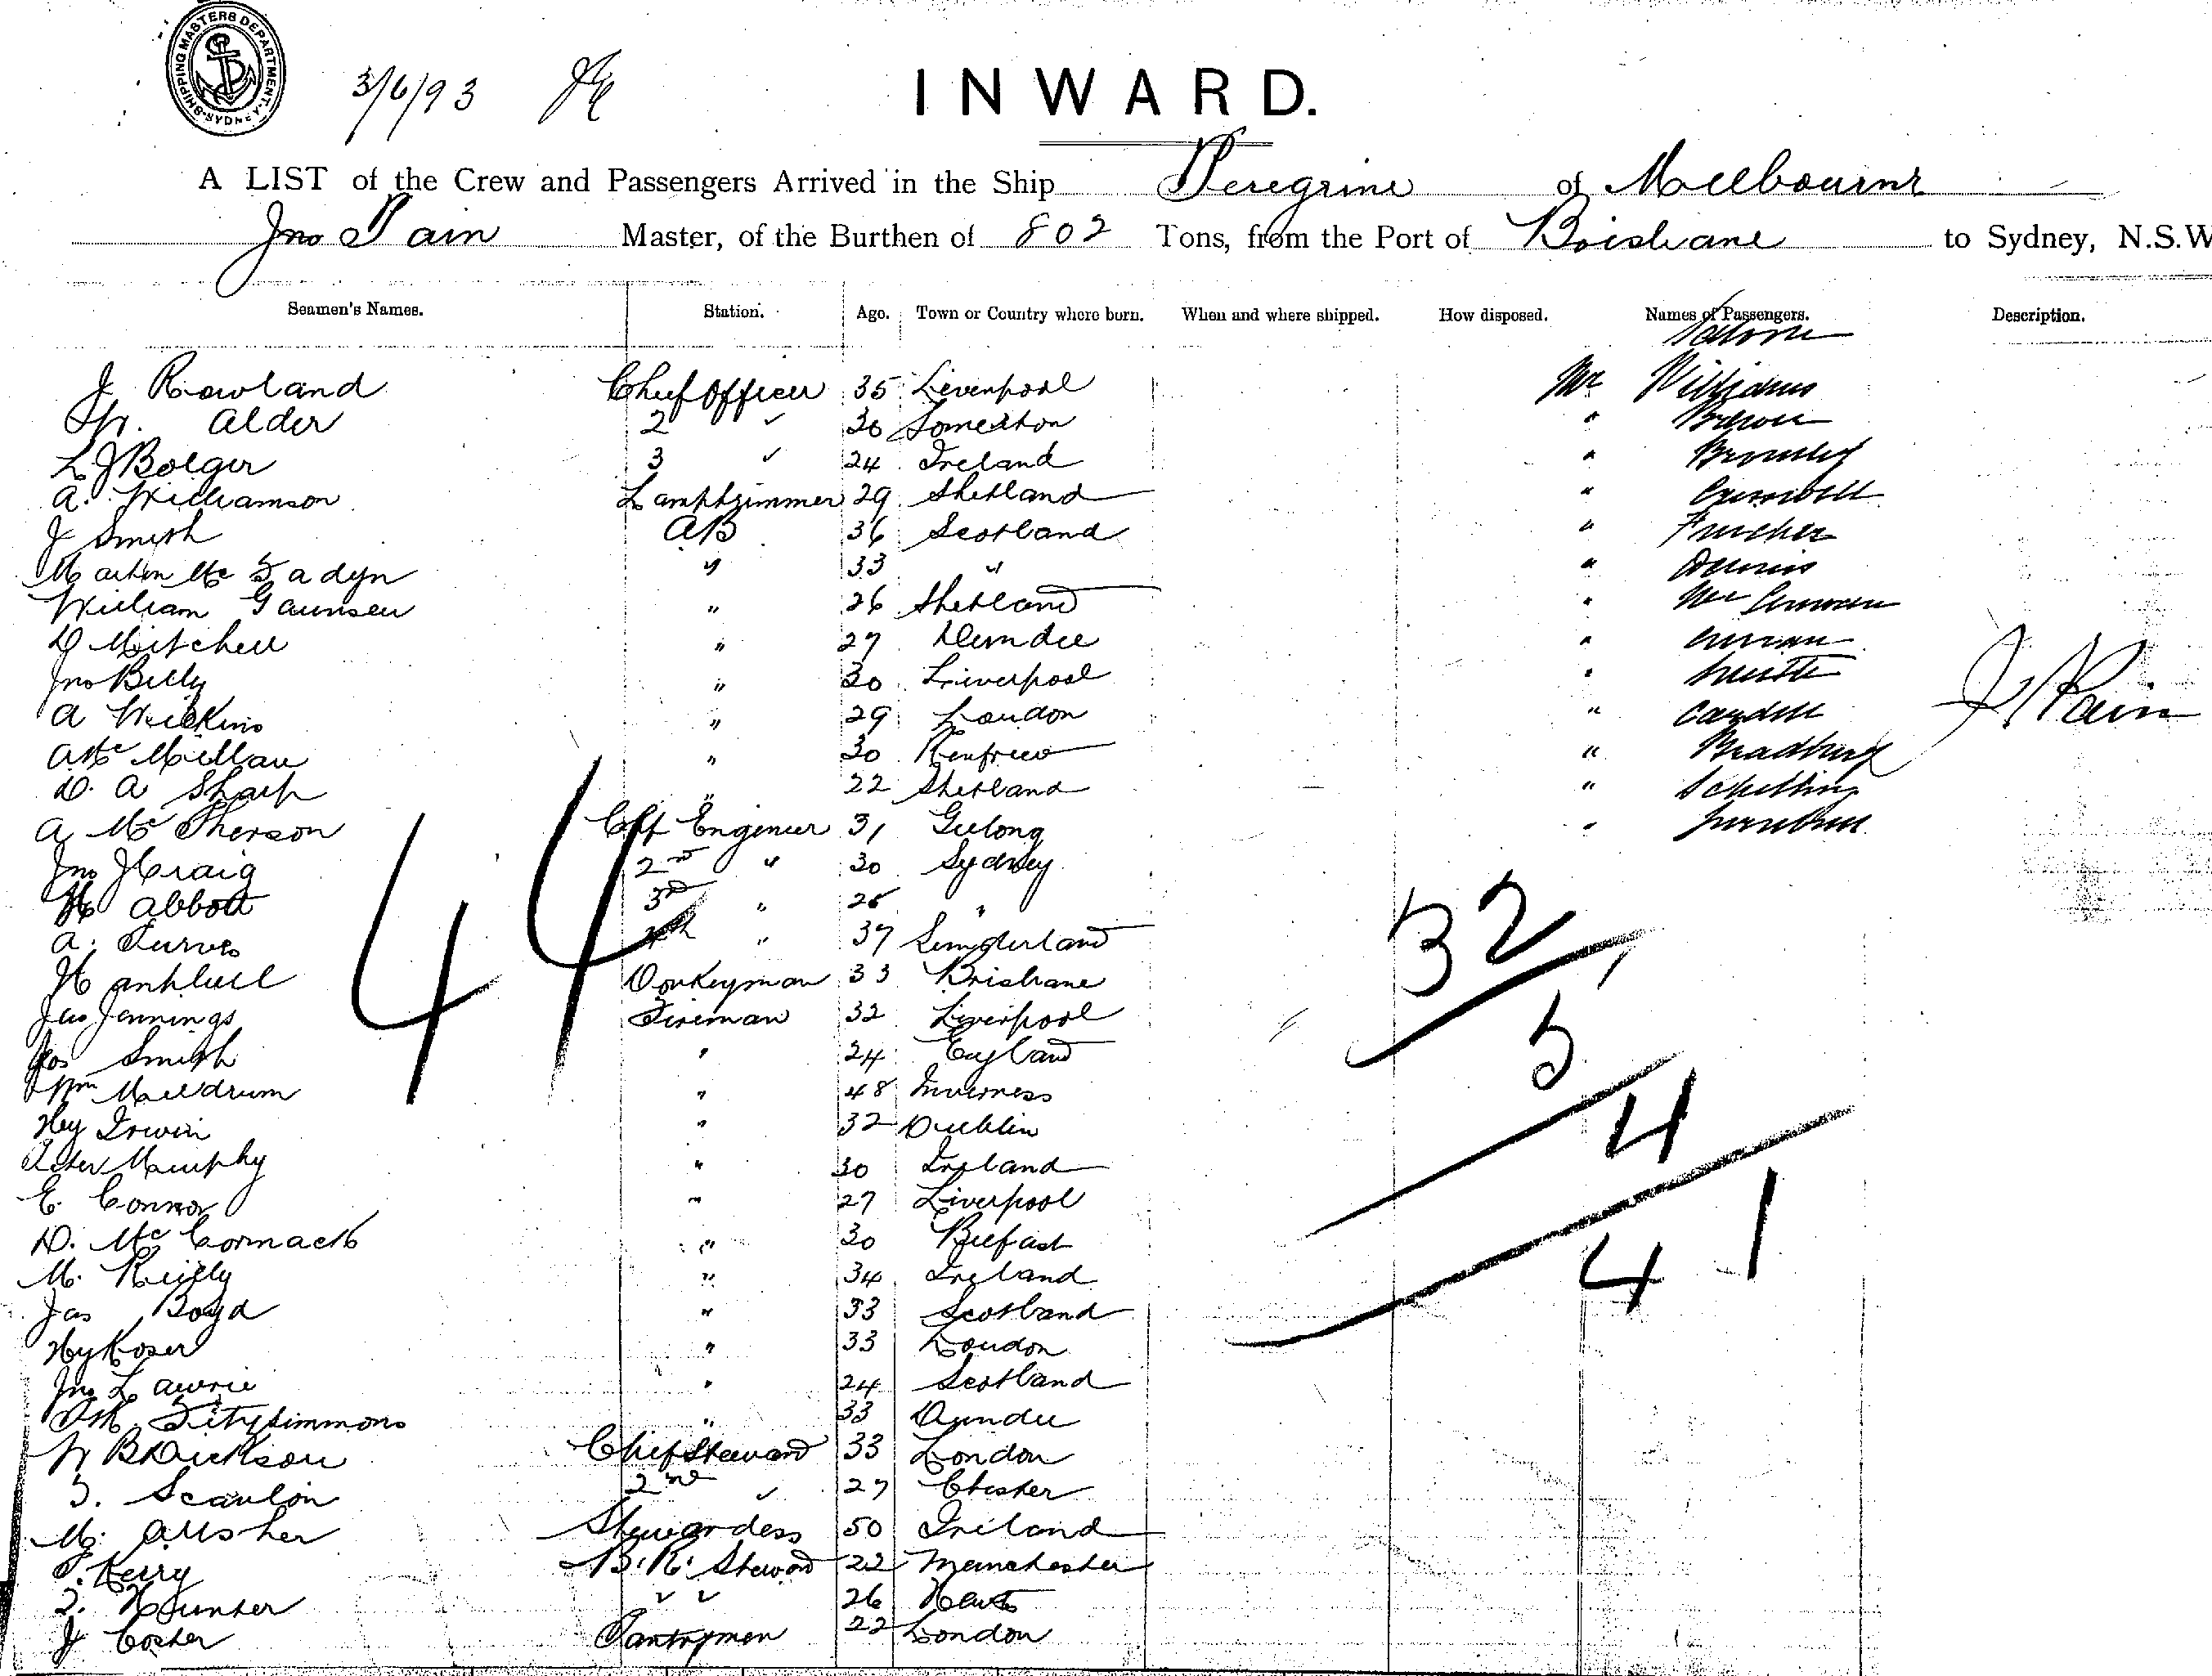 SHIPPING MASTERS DEPARTMENT SYDNEY
3/6/93
INWARD.
A LIST of the Crew and Passengers Arrived in the Ship Peregrine of Melbourne
Jno Pain Master, of the Burthen of 802 Tons, from the Port of Brisbane to Sydney, N.S.W
Seamen's Names. Station. Age. Town or Country where born. When and where shipped. How disposed. Names of Passengers. Description.
Saloon
J Rowland Chief Officer 35 Liverpool Mr Williams
Alder 2 " 30 "
L J Bolger 3 " 24 Ireland " Bromley
A. Williamson Lamptrimmer 29 Shetland "
J Smith AB 36 Scotland "
Martin Mc Fadyn " 33 " " Dennis
William Gaunseu " 26 Shetland "
D Mitchell " 27 Dundee "
Jno Billy " 30 Liverpool "
A Wilkins " 29 London " Cardell
A Mc Millan " 30 Renfrew " Bradbury
D. A Sharp " 22 Shetland " Schilling
A Mc Pherson Chf Engineer 31 Geelong "
Jno J Craig 2nd " 30 Sydney
H Abbott 3rd " 26 "
A. Purves 4th " 37 Sunderland
H Donkeyman 33 Brisbane
Jas Jennings Fireman 32 Liverpool
Jos Smith " 24 England
Wm Meldrum " 48 Inverness
Hy Irwin " 32 Dublin
Peter Murphy " 30 Ireland
E. Connor " 27 Liverpool
D. Mc Cormack " 30 Belfast
M. Reilly " 34 Ireland
Jas Boyd " 33 Scotland
Hy Koser " 33 London
Jno Lawrie " 24 Scotland
Fitzsimmons " 33 Dundee
W B Dickson Chief Steward 33 London
J. Scanlon 2nd " 27 Chester
M. Allsher Stewardess 50 Ireland
T. Kerry B. R. Steward 22 Manchester
J. Hunter " " 26
J Cosher Pantryman 22 London
J Pain
44
32
5
4
41